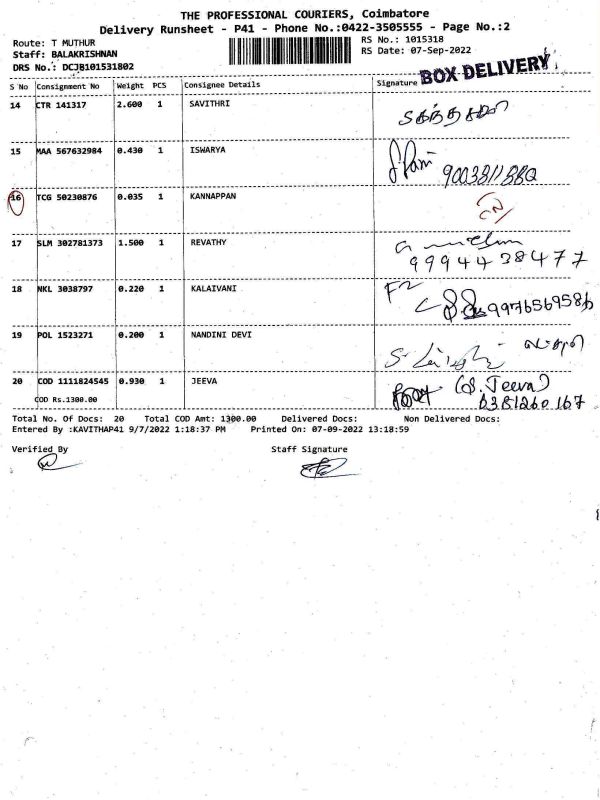 THE PROFESSIONAL COURIERS, Coimbatore
Delivery Runsheet - P41 - Phone No.:0422-3505555 - Page No.:2
Route: T MUTHUR
RS No.: 1015318
Staff: BALAKRISHNAN
RS Date: 07-Sep-2022
DRS No.: DCJB101531802
BOX DELIVERY
S No Consignment No Weight PCS Consignee Details Signature
14 CTR 141317 2.600 1 SAVITHRI
15 MAA 567632984 0.430 1 ISWARYA
16 TCG 50230876 0.035 1 KANNAPPAN
17 SLM 302781373 1.500 1 REVATHY
9994438477
18 NKL 3038797 0.220 1 KALAIVANI F2
9976569586
19 POL 1523271 0.200 1 NANDINI DEVI
20 COD 1111824545 0.930 1 JEEVA (S. Jeeva)
COD Rs.1300.00
Total No. Of Docs: 20 Total COD Amt: 1300.00 Delivered Docs: Non Delivered Docs:
Entered By :KAVITHAP41 9/7/2022 1:18:37 PM Printed On: 07-09-2022 13:18:59
Verified By Staff Signature